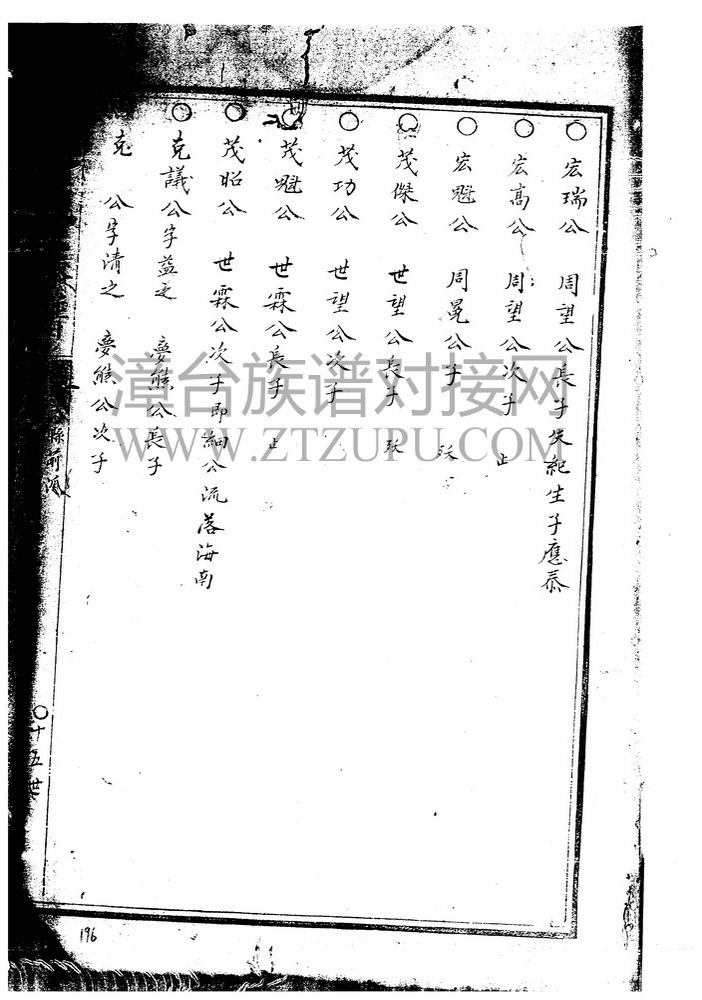 ○宏瑞公 周望公長子失紀生子應泰
○宏高公 周望公次子 止
○宏魁公 周冕公子
○茂傑公 世望公長子
○茂功公 世望公次子
○茂魁公 世霖公長子 止
○茂昭公 世霖公次子即細公流落海南
○克議公字益之 夢熊公長子
克 公字清之 夢熊公次子
○十五世
196
漳台族谱对接网
WWW.ZTZUPU.COM